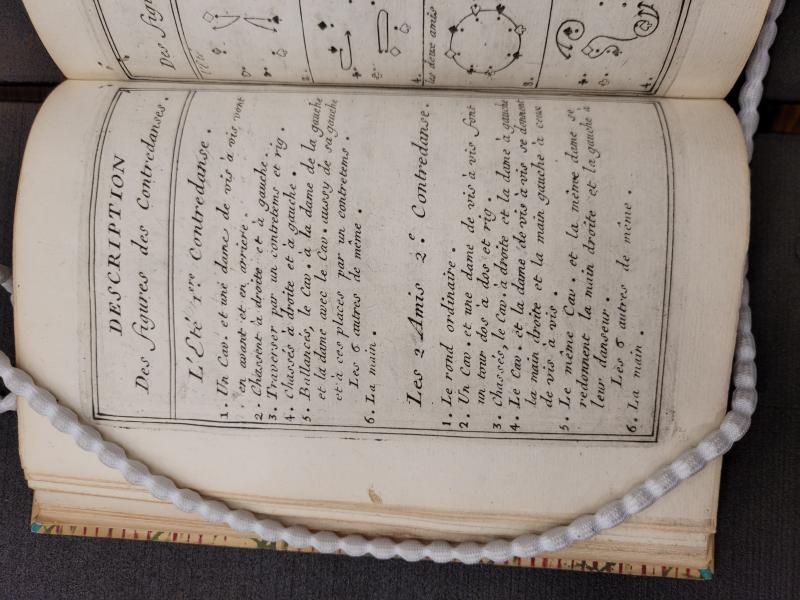 DESCRIPTION
Des figures des Contredanses.
L'Eté 1.ere Contredanse.
1. Un Cav. et une dame de vis à vis vont
en avant et en arriere.
2. Chassent à droite et à gauche.
3. Traverser par un contretems et rig.
4. Chassés à droite et à gauche.
5. Ballancés, le Cav. à la dame de la gauche
et la dame avec le Cav. aussy de sa gauche
et à ces places par un contretems.
Les 6 autres de même.
6. La main.
Les 2 Amis 2.e Contredanse.
1. Le rond ordinaire.
2. Un Cav. et une dame de vis à vis font
un tour dos à dos et rig.
3. Chassés, le Cav. à droite et la dame à gauche
4. Le Cav. et la dame de vis à vis se donnent
la main droite et la main gauche à ceux
de vis à vis.
5. Le même Cav. et la même dame se
redonnent la main droite et la gauche à
leur danseur.
Les 6 autres de même.
6. La main.
Des figu
L'Eté
2.
4.
les deux amis
3.
4.